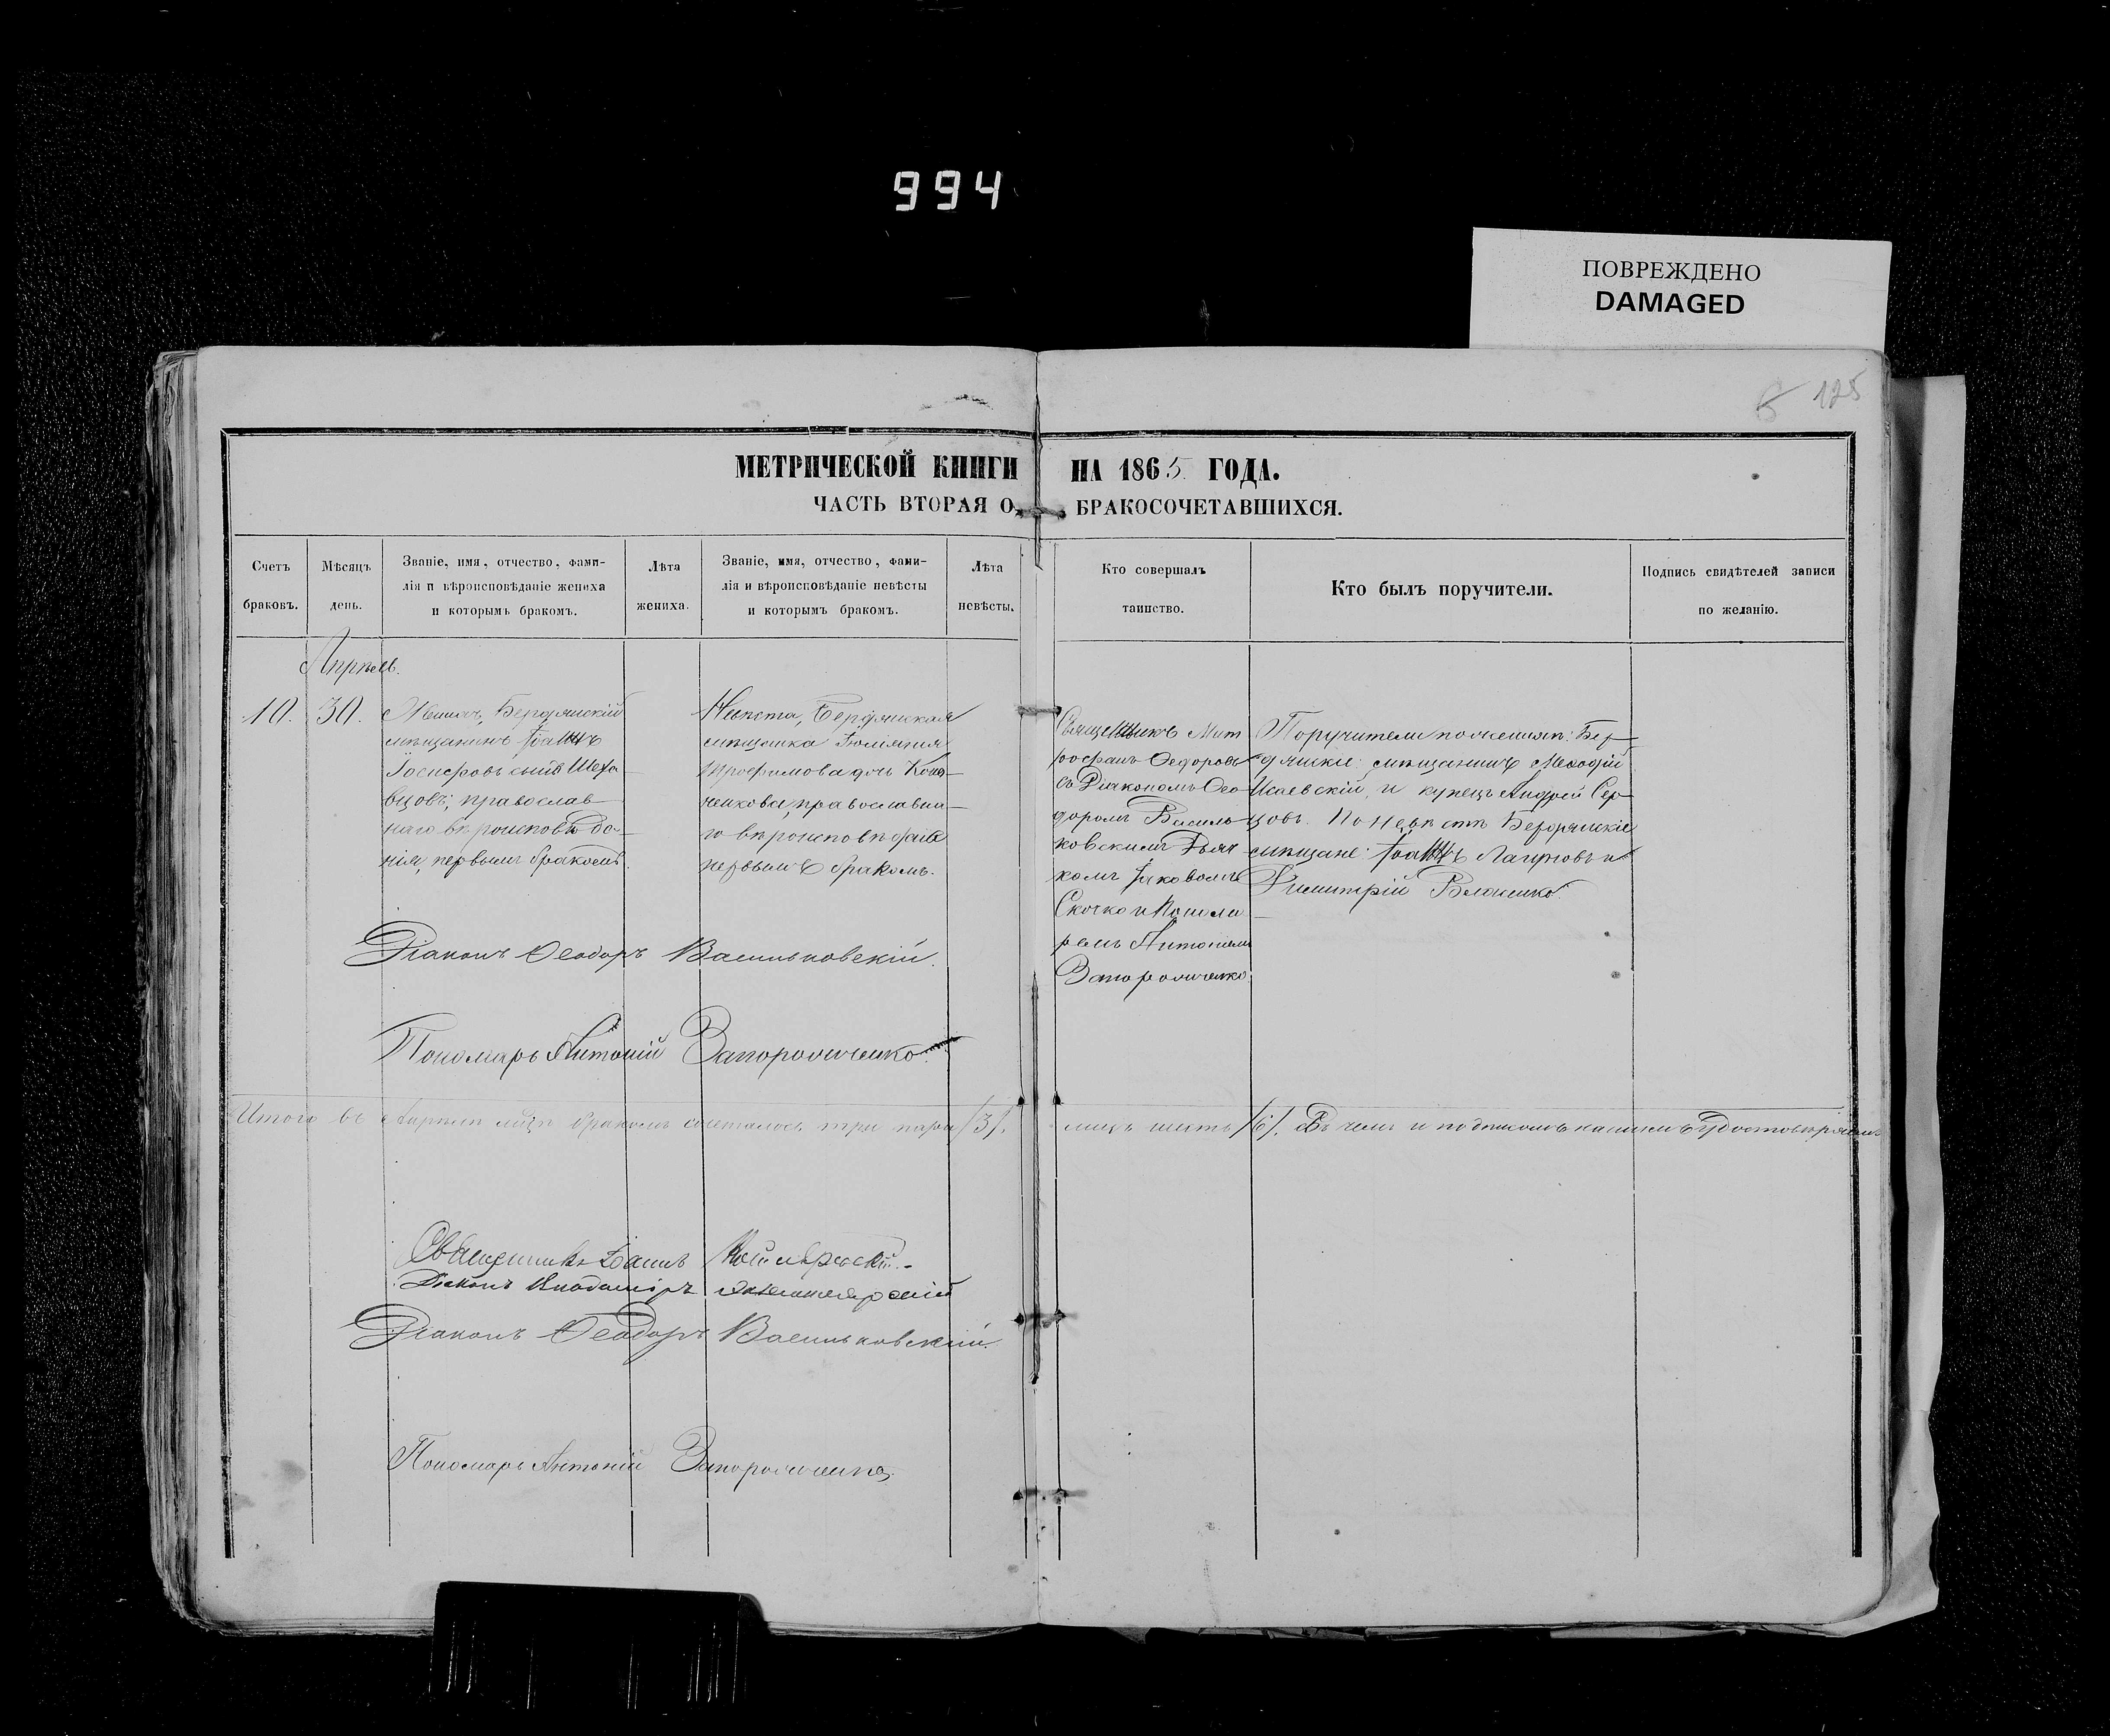 994
ПОВРЕЖДЕНО
DAMAGED
125
МЕТРИЧЕСКОЙ КНИГИ НА 1865 ГОДА.
ЧАСТЬ ВТОРАЯ О БРАКОСОЧЕТАВШИХСЯ.
Счетъ браковъ.
Мѣсяцъ день.
Званіе, имя, отчество, фами-
лія и вѣроисповѣданіе жениха
и которымъ бракомъ.
Лѣта жениха.
Званіе, имя, отчество, фами-
лія и вѣроисповѣданіе невѣсты
и которымъ бракомъ.
Лѣта невѣсты.
Кто совершалъ
таинство.
Кто былъ поручители.
Подпись свидѣтелей записи
по желанію.
Апрѣль.
10.
30.
Женихъ, Бердянскій
мѣщанинъ Іоаннъ
Іосифовъ сынъ Шехо
вцовъ, православ
наго вѣроисповѣда
нія, первымъ бракомъ
Невѣста, Бердянская
мѣщанка Іюліянія
Трофимова дочь Коно
ненкова, православна
го вѣроисповѣданія
первымъ бракомъ.
Священникъ Мит
рофанъ Федоровъ
съ Діакономъ Фео
доромъ Василь
ковскимъ Дьяч
комъ Іаковомъ
Скочко и Понома
ремъ Антоніемъ
Запорожченко.
Поручители по женихѣ: Бер
дянскіе: мѣщанинъ Меѳодій
Исаевскій, и купецъ Андрей Сер
цовъ. По невѣстѣ Бердянскіе
мѣщане: Іоаннъ Лавровъ и
Димитрій Власенко.
Діаконъ Феодоръ Васильковскій.
Пономарь Антоній Запорожченко.
Итого въ Апрѣлѣ мѣсяцѣ бракомъ сочеталось три пары /3/. лицъ шесть /6/. Въ чемъ и подписомъ нашимъ удостовѣряемъ
Священникъ Іоаннъ
Діаконъ Владиміръ
Діаконъ Феодоръ Васильковскій.
Пономарь Антоній Запорожченко.